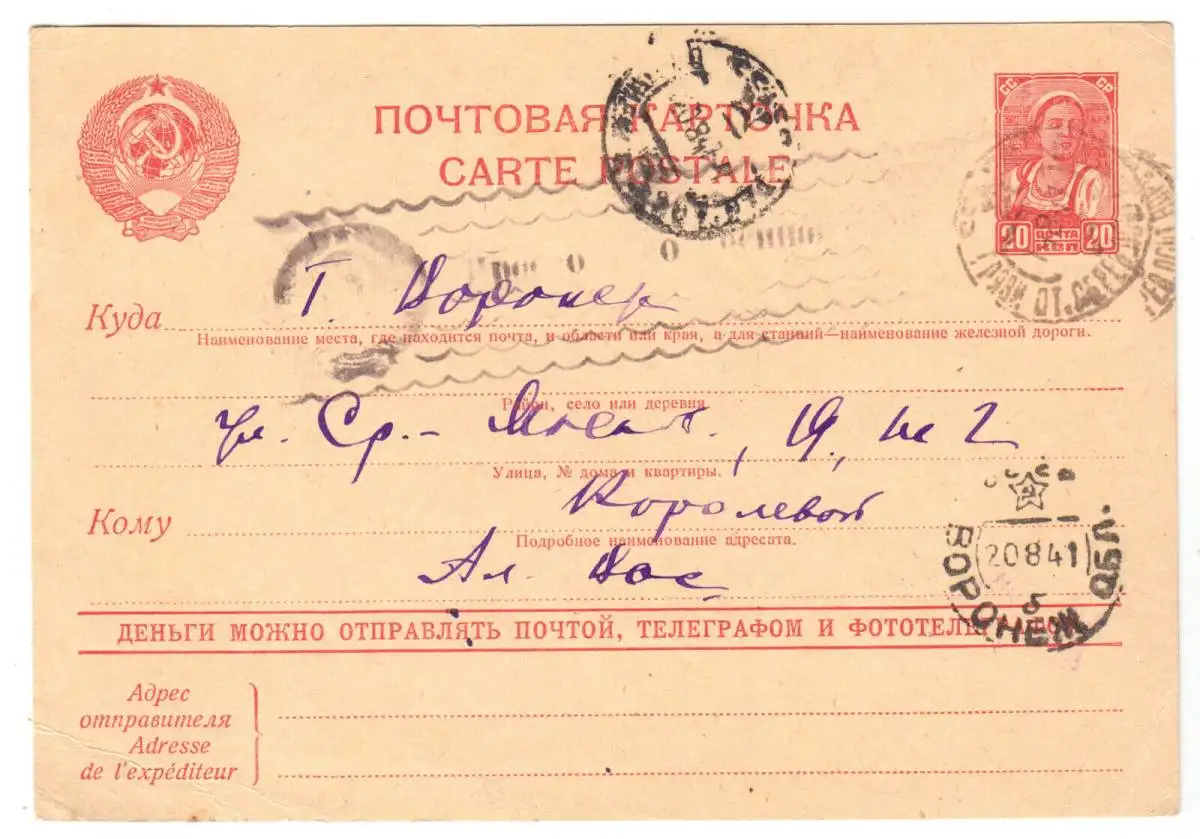 СС СР
ПОЧТОВАЯ КАРТОЧКА
CARTE POSTALE
20 ПОЧТА 20
КОП
Куда Г. Воронеж
Наименование места, где находится почта, и области или края, а для станций—наименование железной дороги.
Район, село или деревня
ул. Ср.-Моск., 19, кв 2
Улица, № дома и квартиры.
Кому Королевой
Подробное наименование адресата.
Ал. Вас
20 8 41
5
ВОРОНЕЖ
ДЕНЬГИ МОЖНО ОТПРАВЛЯТЬ ПОЧТОЙ, ТЕЛЕГРАФОМ И ФОТОТЕЛЕГРАФОМ
Адрес
отправителя
Adresse
de l'expéditeur